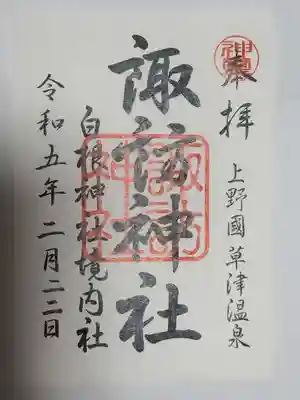 奉拝
上野國草津温泉
諏訪神社
白根神社境内社
令和五年二月二二日